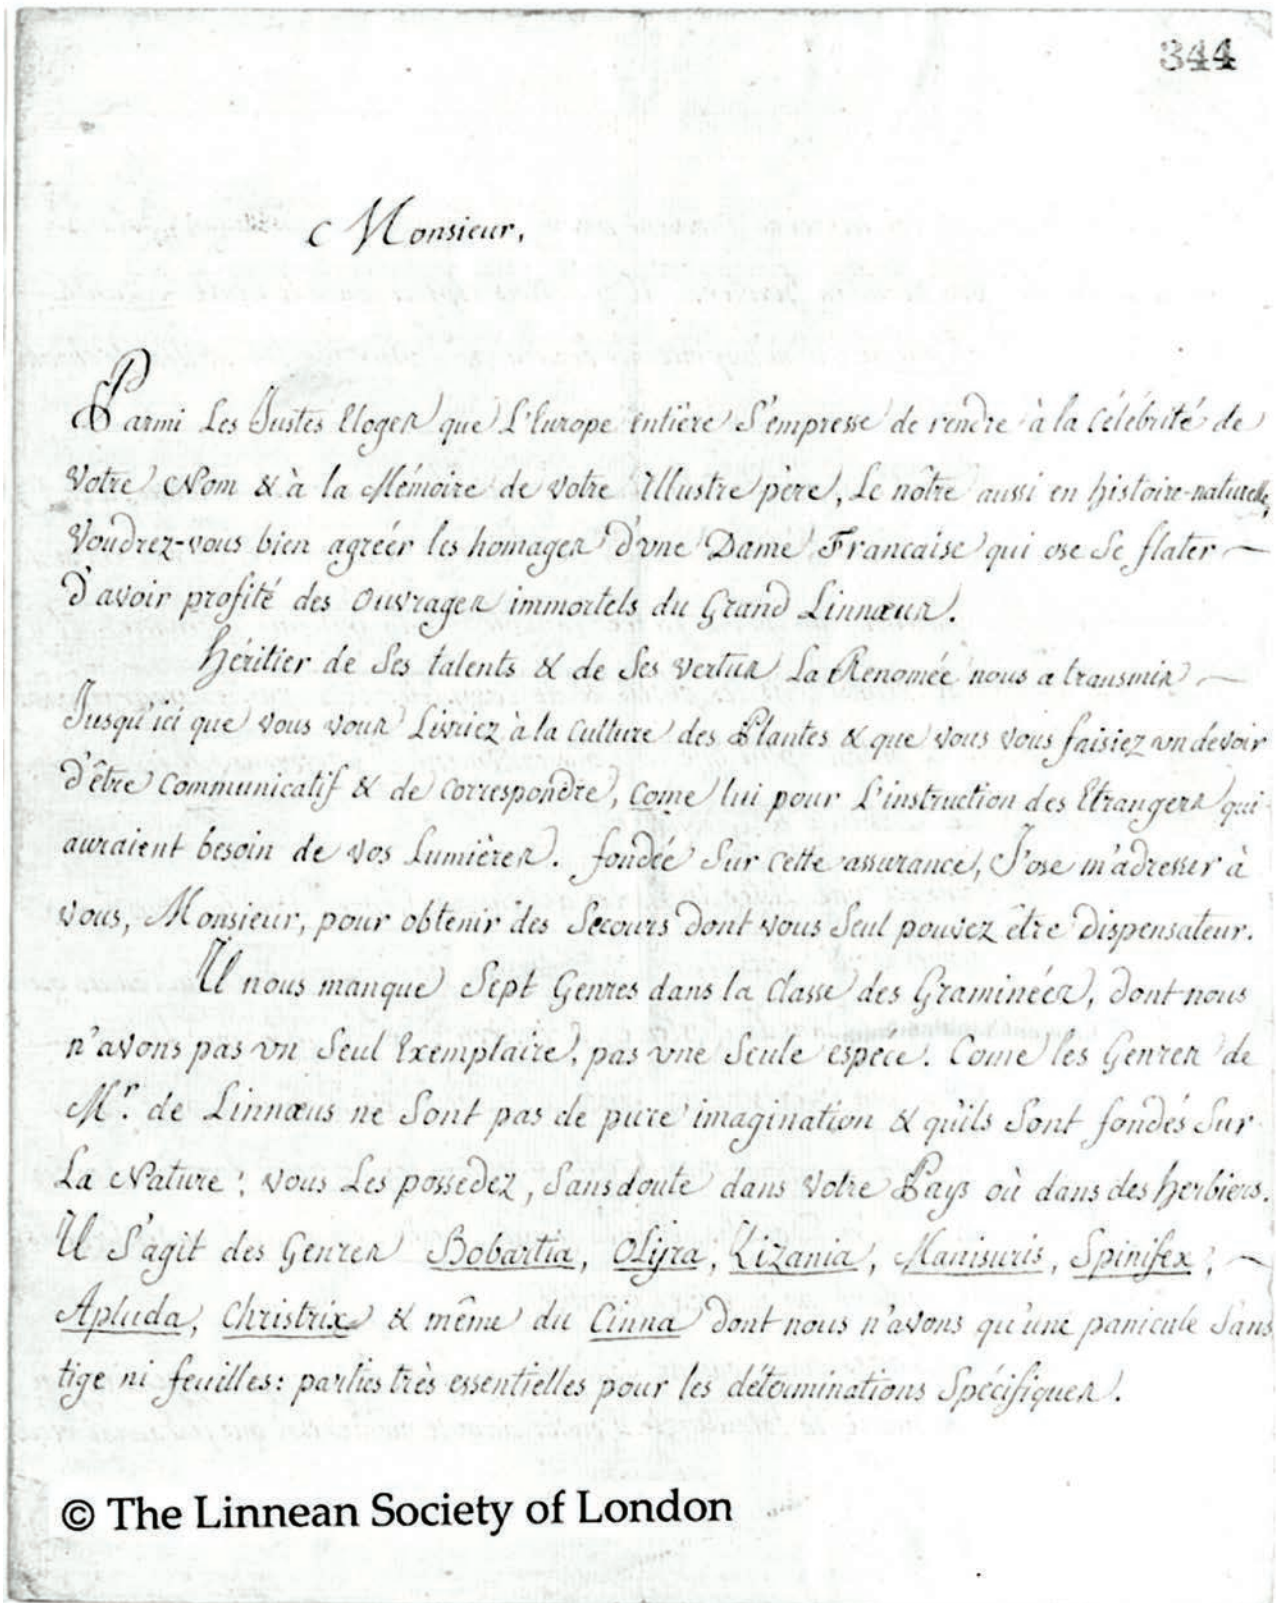 344
Monsieur,
Parmi Les Justes Eloges que L'Europe entière S'empresse de rendre à la Célébrité de
Votre Nom & à la Mémoire de votre Illustre père, Le nôtre aussi en histoire-naturelle,
Voudrez-vous bien agréér les homages d'une Dame Francaise qui ose Se flater —
d'avoir profité des Ouvrages immortels du Grand Linnæus.
héritier de Ses talents & de Ses vertus La Renomée nous a transmis —
Jusqu'ici que vous vous Livriez à la Culture des Plantes & que vous vous faisiez un devoir
d'être Communicatif & de Correspondre, Come lui pour L'instruction des Etrangers qui
auraient besoin de vos Lumières. fondée Sur cette assurance, J'ose m'adresser à
vous, Monsieur, pour obtenir des Secours dont vous Seul pouvez être dispensateur.
Il nous manque Sept Genres dans la Classe des Graminées, dont nous
n'avons pas un Seul Exemplaire, pas une Seule espéce. Come les Genres de
Mr. de Linnæus ne Sont pas de pure imagination & qu'ils Sont fondés Sur
La Nature; vous Les possedez, Sans doute dans Votre Pays où dans des herbiers.
Il S'agit des Genres Bobartia, OLyra, Zizania, Manisuris, Spinifex, —
Apluda, Christrix & même du Cinna dont nous n'avons qu'une panicule Sans
tige ni feuilles: parties très essentielles pour les déterminations Spécifiques.
© The Linnean Society of London